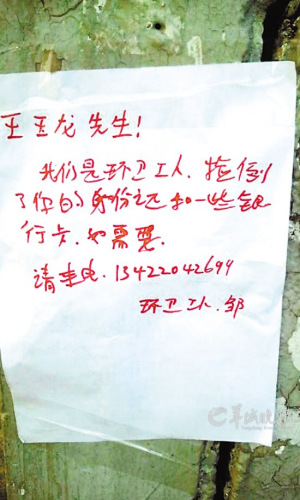 王玉龙先生!
我们是环卫工人.捡到
了你的身份证和一些银
行卡.如需要.
请来电.13422042699
环卫工人.邹
羊城晚报